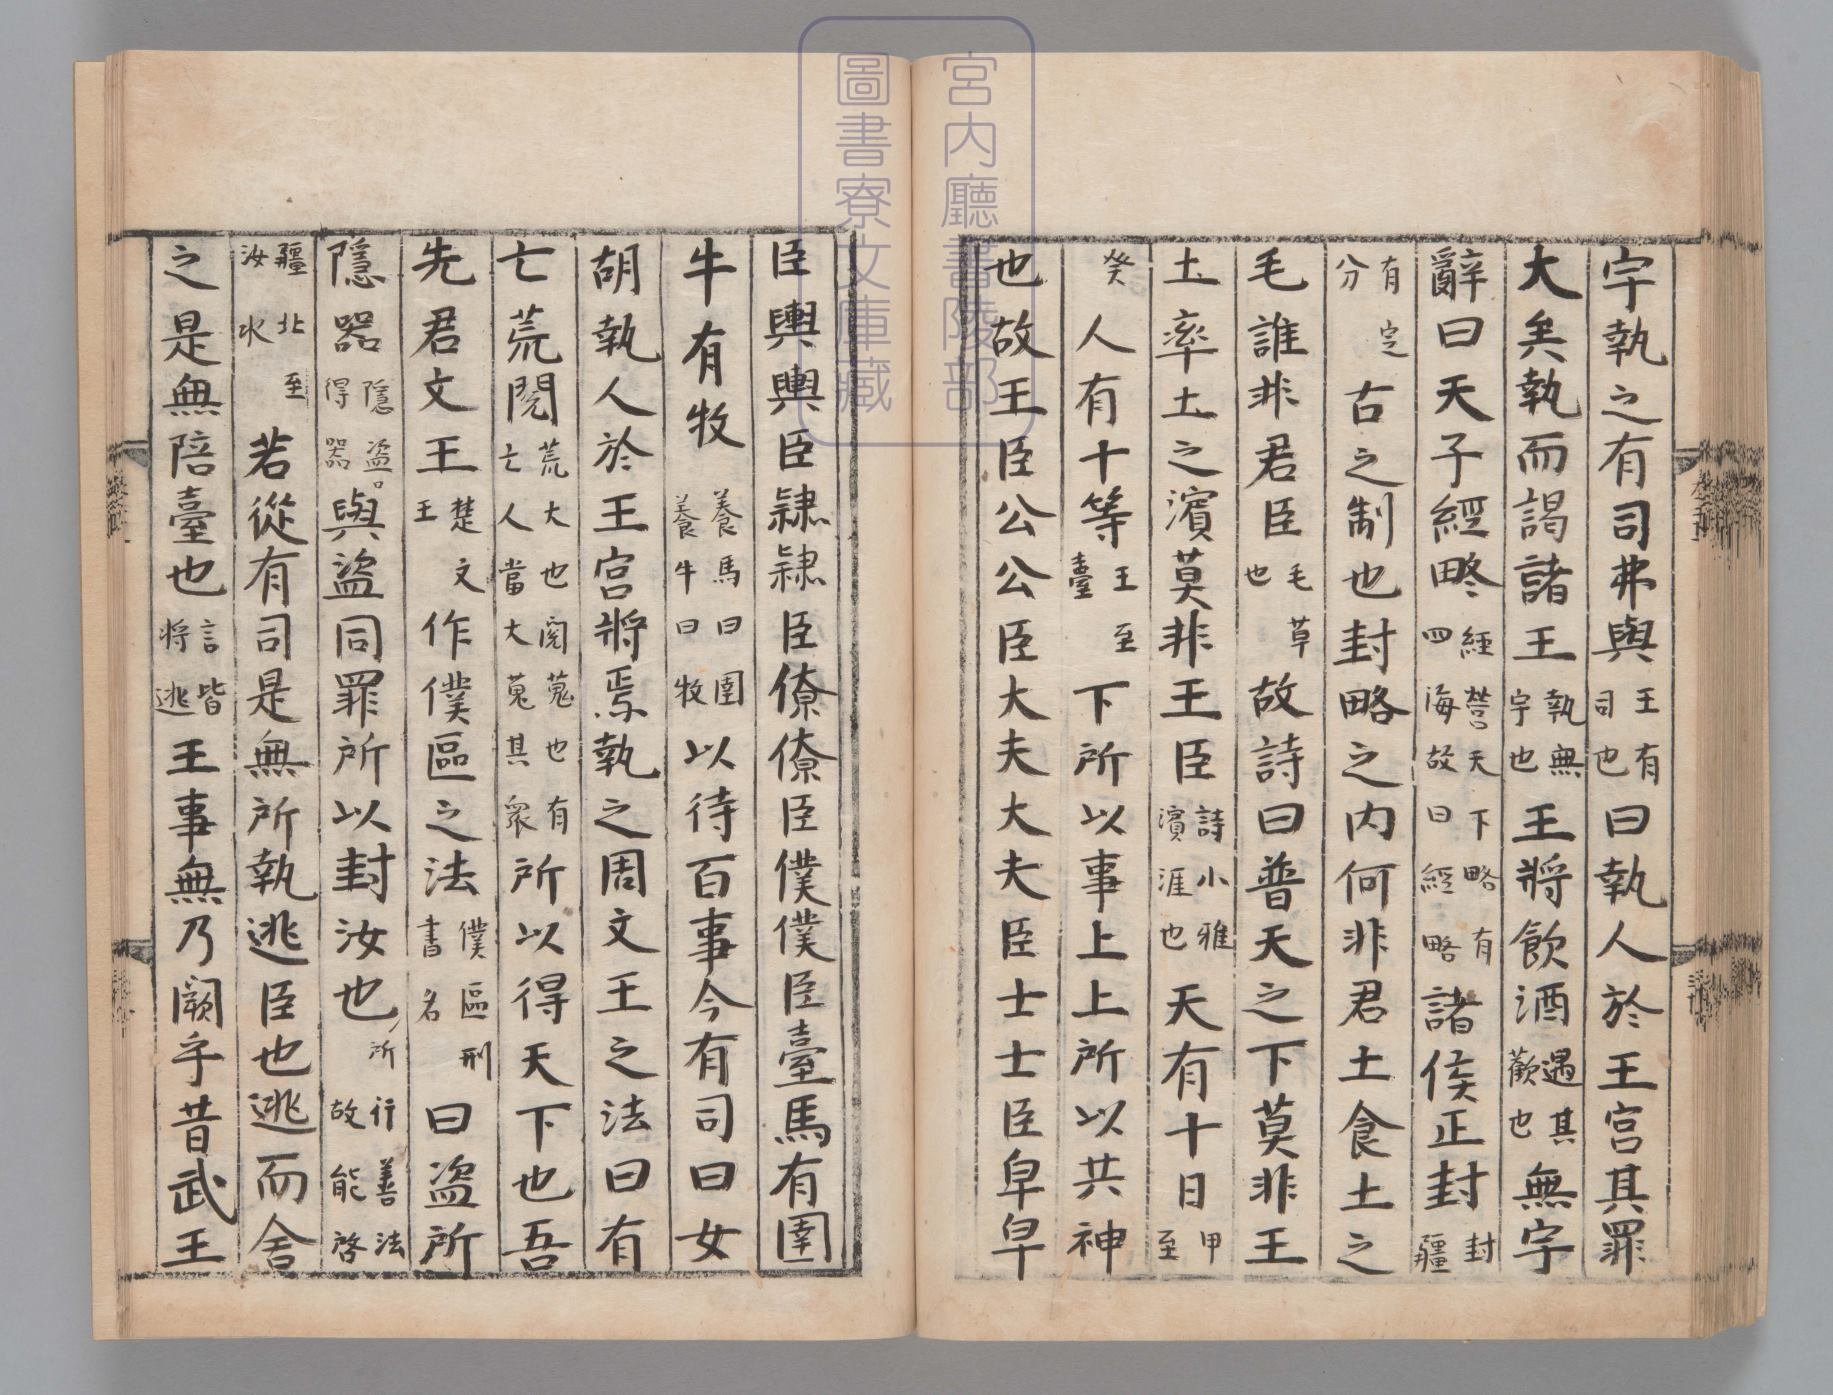 宇執之有司弗與王有司也曰執人於王宮其罪
大矣執而謁諸王執無宇也王將飲酒遇其歡也無宇
辭曰天子經畧經營天下略有四海故曰經略諸侯正封封疆
有定分古之制也封略之內何非君土食土之
毛誰非君臣毛草也故詩曰普天之下莫非王
土率土之濱莫非王臣詩小雅濱涯也天有十日甲至
癸人有十等王至臺下所以事上上所以共神
也故王臣公公臣大夫大夫臣士士臣皁皁
臣輿輿臣隷隷臣僚僚臣僕僕臣臺馬有圉
牛有牧養馬曰圉養牛曰牧以待百事今有司曰女
胡執人於王宮將焉執之周文王之法曰有
亡荒閱荒大也閱蒐也有亡人當大蒐其衆所以得天下也吾
先君文王楚文王作僕區之法僕區刑書名曰盜所
隱器隱盜得器與盜同罪所以封汝也所行善法故能啓
疆北至汝水若從有司是無所執逃臣也逃而舍
之是無陪臺也言皆將逃王事無乃闕乎昔武王
宮內廳書陵部
圖書寮文庫藏